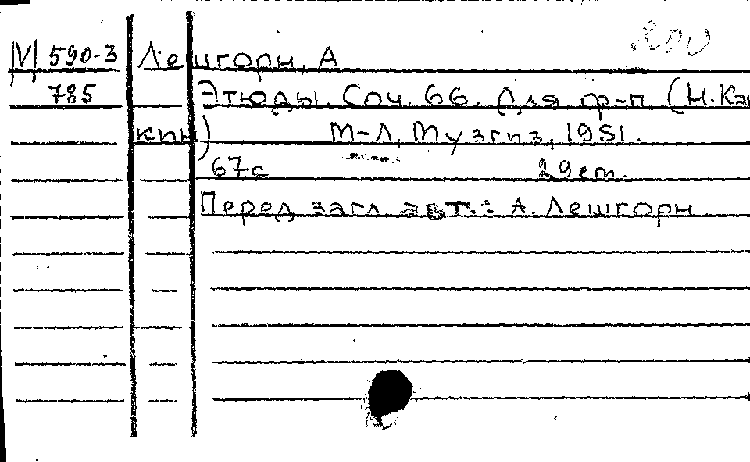 200
М 590-3 Лешгорн, А
785 Этюды. Соч. 66. Для ф-п. (Н. Ка
кпн) М-Л, Музгиз, 1951.
67с 29 cm.
Перед загл. авт.: А. Лешгорн.